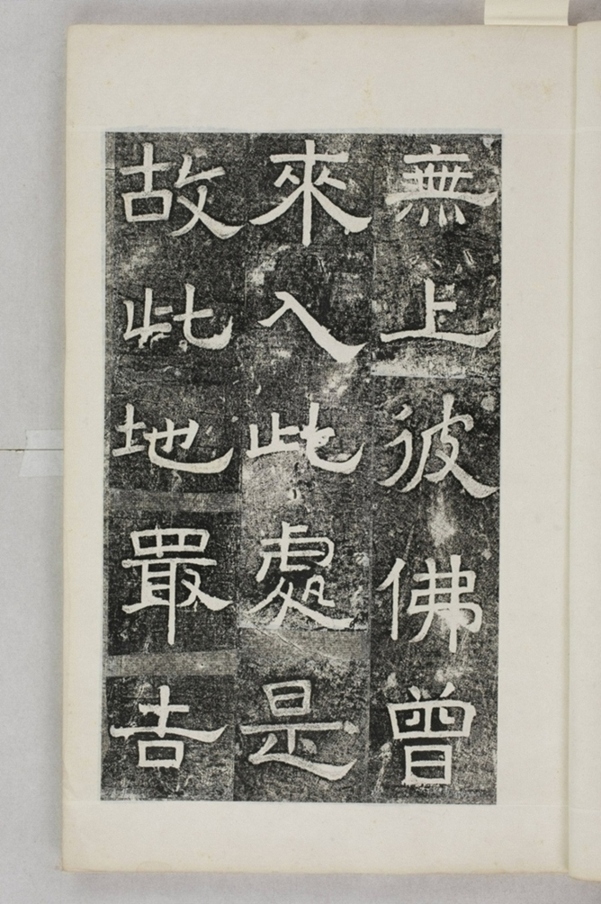 無上彼佛曾
來入此處是
故此地冣吉